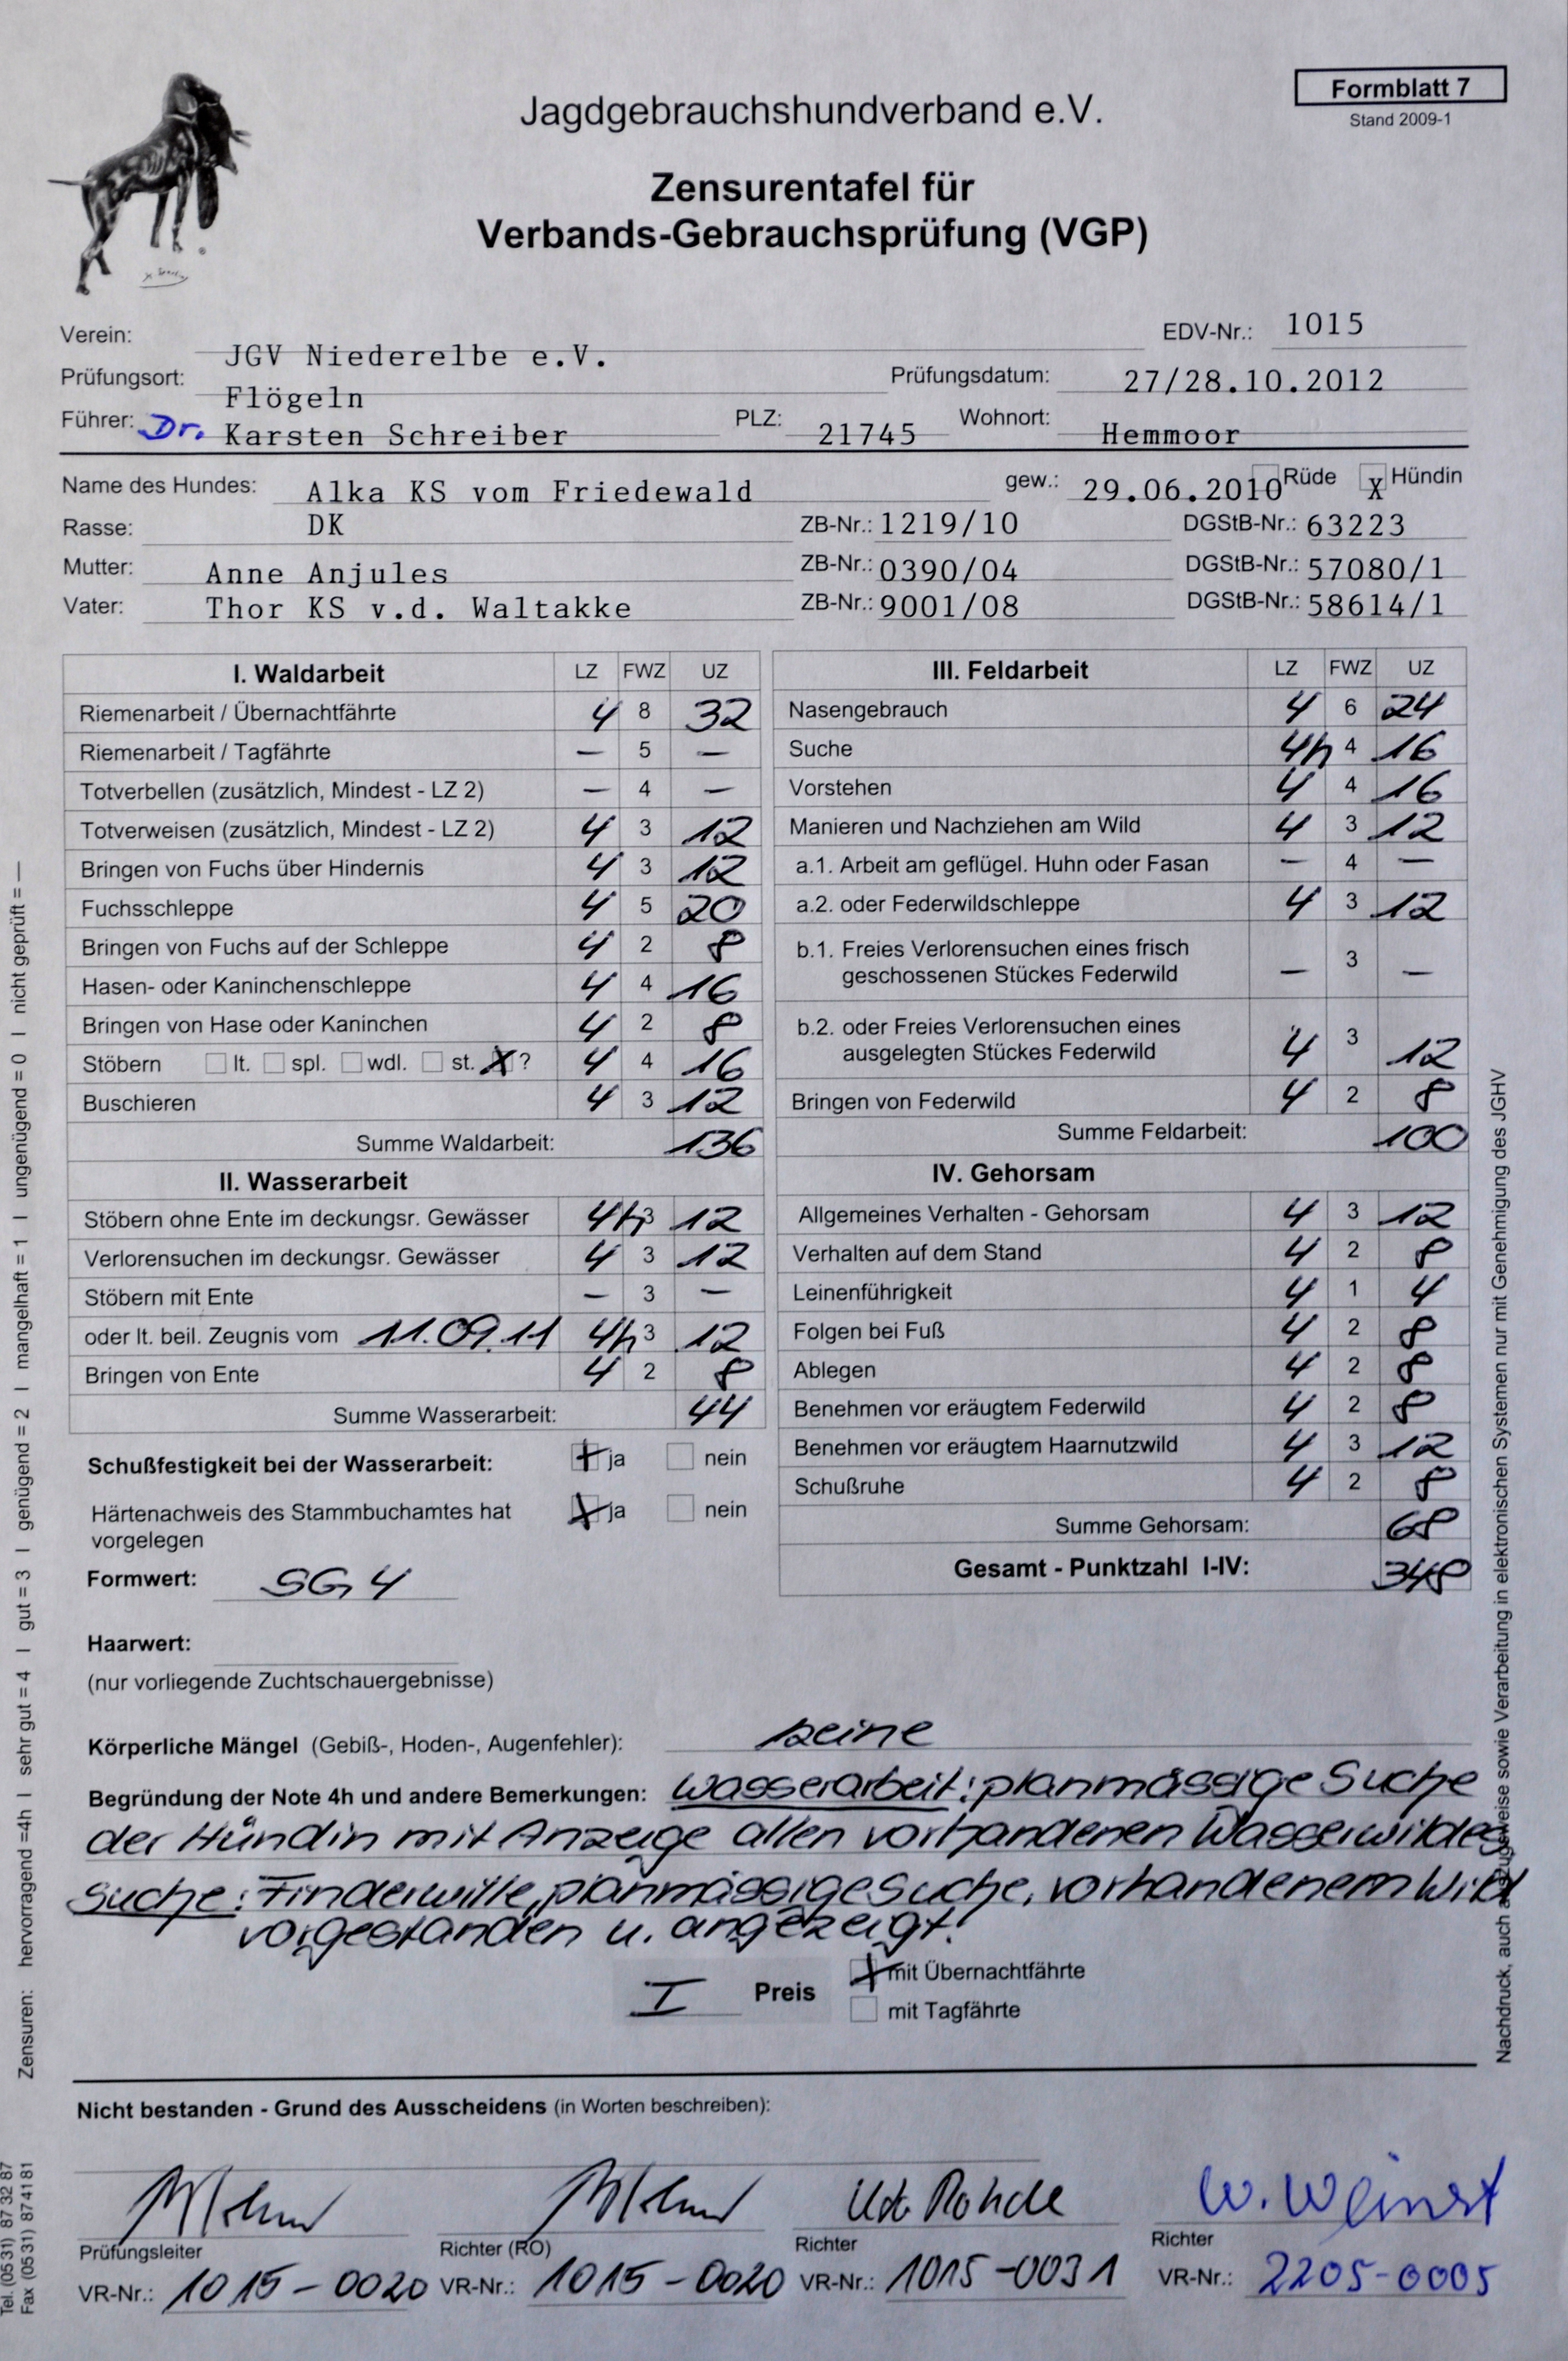 Formblatt 7
Stand 2009-1
Jagdgebrauchshundverband e.V.
Zensurentafel für
Verbands-Gebrauchsprüfung (VGP)
Verein: JGV Niederelbe e.V. EDV-Nr.: 1015
Prüfungsort: Flögeln Prüfungsdatum: 27/28.10.2012
Führer: Dr. Karsten Schreiber PLZ: 21745 Wohnort: Hemmoor
Name des Hundes: Alka KS vom Friedewald gew.: 29.06.2010 Rüde X Hündin
Rasse: DK ZB-Nr.: 1219/10 DGStB-Nr.: 63223
Mutter: Anne Anjules ZB-Nr.: 0390/04 DGStB-Nr.: 57080/1
Vater: Thor KS v.d. Waltakke ZB-Nr.: 9001/08 DGStB-Nr.: 58614/1
I. Waldarbeit LZ FWZ UZ
Riemenarbeit / Übernachtfährte 4 8 32
Riemenarbeit / Tagfährte — 5 —
Totverbellen (zusätzlich, Mindest - LZ 2) — 4 —
Totverweisen (zusätzlich, Mindest - LZ 2) 4 3 12
Bringen von Fuchs über Hindernis 4 3 12
Fuchsschleppe 4 5 20
Bringen von Fuchs auf der Schleppe 4 2 8
Hasen- oder Kaninchenschleppe 4 4 16
Bringen von Hase oder Kaninchen 4 2 8
Stöbern lt. spl. wdl. st. X ? 4 4 16
Buschieren 4 3 12
Summe Waldarbeit: 136
II. Wasserarbeit
Stöbern ohne Ente im deckungsr. Gewässer 4h 3 12
Verlorensuchen im deckungsr. Gewässer 4 3 12
Stöbern mit Ente — 3 —
oder lt. beil. Zeugnis vom 11.09.11 4h 3 12
Bringen von Ente 4 2 8
Summe Wasserarbeit: 44
Schußfestigkeit bei der Wasserarbeit: X ja nein
Härtenachweis des Stammbuchamtes hat X ja nein
vorgelegen
Formwert: SG 4
Haarwert:
(nur vorliegende Zuchtschauergebnisse)
III. Feldarbeit LZ FWZ UZ
Nasengebrauch 4 6 24
Suche 4h 4 16
Vorstehen 4 4 16
Manieren und Nachziehen am Wild 4 3 12
a.1. Arbeit am geflügel. Huhn oder Fasan — 4 —
a.2. oder Federwildschleppe 4 3 12
b.1. Freies Verlorensuchen eines frisch
geschossenen Stückes Federwild — 3 —
b.2. oder Freies Verlorensuchen eines
ausgelegten Stückes Federwild 4 3 12
Bringen von Federwild 4 2 8
Summe Feldarbeit: 100
IV. Gehorsam
Allgemeines Verhalten - Gehorsam 4 3 12
Verhalten auf dem Stand 4 2 8
Leinenführigkeit 4 1 4
Folgen bei Fuß 4 2 8
Ablegen 4 2 8
Benehmen vor eräugtem Federwild 4 2 8
Benehmen vor eräugtem Haarnutzwild 4 3 12
Schußruhe 4 2 8
Summe Gehorsam: 68
Gesamt - Punktzahl I-IV: 348
Körperliche Mängel (Gebiß-, Hoden-, Augenfehler): keine
Begründung der Note 4h und andere Bemerkungen: Wasserarbeit: planmässige Suche
der Hündin mit Anzeige allen vorhandenen Wasserwildes
Suche: Finderwille, planmässige Suche, vorhandenem Wild
vorgestanden u. angezeigt!
I Preis X mit Übernachtfährte
mit Tagfährte
Nicht bestanden - Grund des Ausscheidens (in Worten beschreiben):
Udo Rohde W. Weinert
Prüfungsleiter Richter (RO) Richter Richter
VR-Nr.: 1015-0020 VR-Nr.: 1015-0020 VR-Nr.: 1015-0031 VR-Nr.: 2205-0005
Zensuren: hervorragend =4h I sehr gut = 4 I gut = 3 I genügend = 2 I mangelhaft = 1 I ungenügend = 0 I nicht geprüft = —
Tel. (05 31) 87 32 87
Fax (05 31) 87 41 81
Nachdruck, auch auszugsweise sowie Verarbeitung in elektronischen Systemen nur mit Genehmigung des JGHV